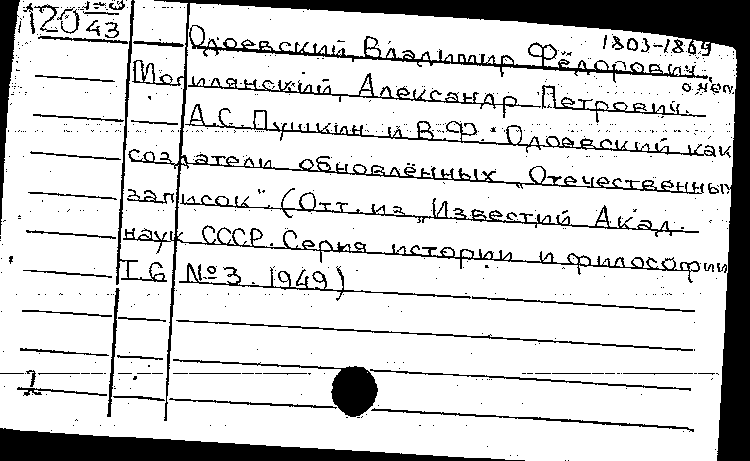 120 43
1803-1869
Одоевский, Владимир Фёдорович.
о нем.
Могилянский, Александр Петрович.
А.С. Пушкин и В.Ф. Одоевский как
создатели обновлённых „Отечественных
записок". (Отт. из „Известий Акад.
наук СССР. Серия истории и философии
Т. 6 №3. 1949)
1